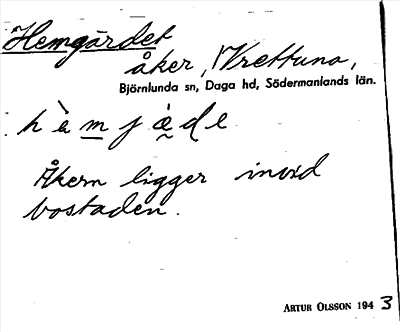 Hemgärdet
åker, Vrettuna,
Björnlunda sn, Daga hd, Södermanlands län.
hèmjäde
Åkern ligger invid
bostaden.
ARTUR OLSSON 1943